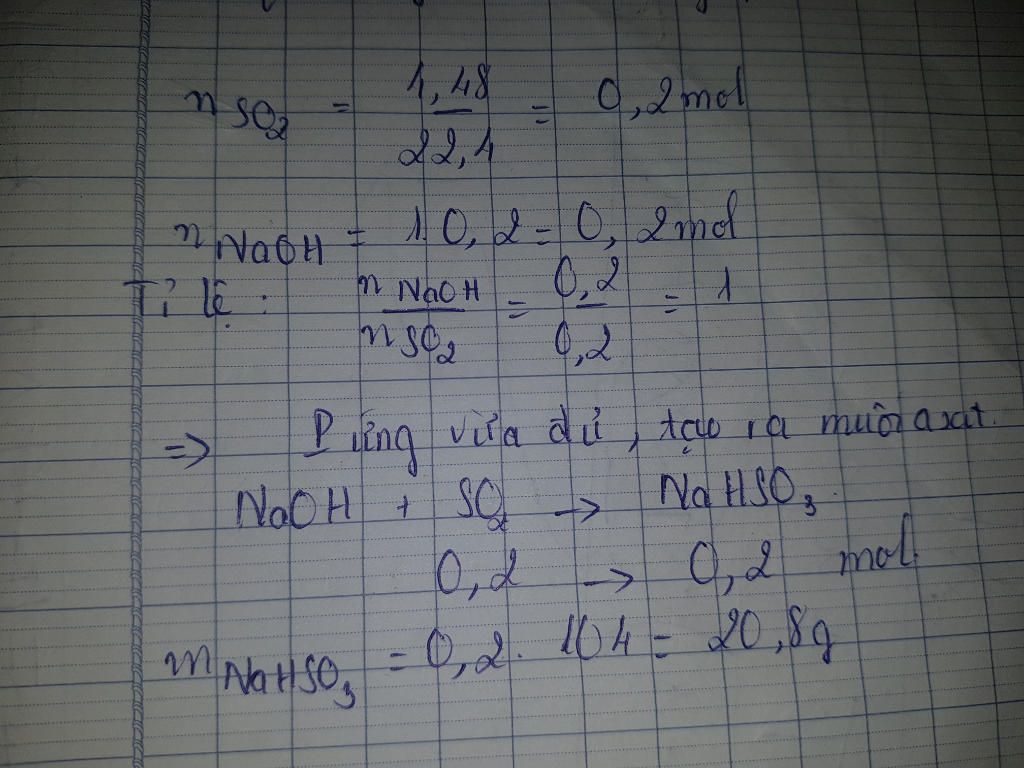 nSO₂ = 1,48/22,4 = 0,2 mol
nNaOH = 1.0,2 = 0,2 mol
Tỉ lệ: nNaOH/nSO₂ = 0,2/0,2 = 1
=> Pứng vừa đủ, tạo ra muối axit.
NaOH + SO₂ → NaHSO₃.
0,2 → 0,2 mol
mNaHSO₃ = 0,2.104 = 20,8g